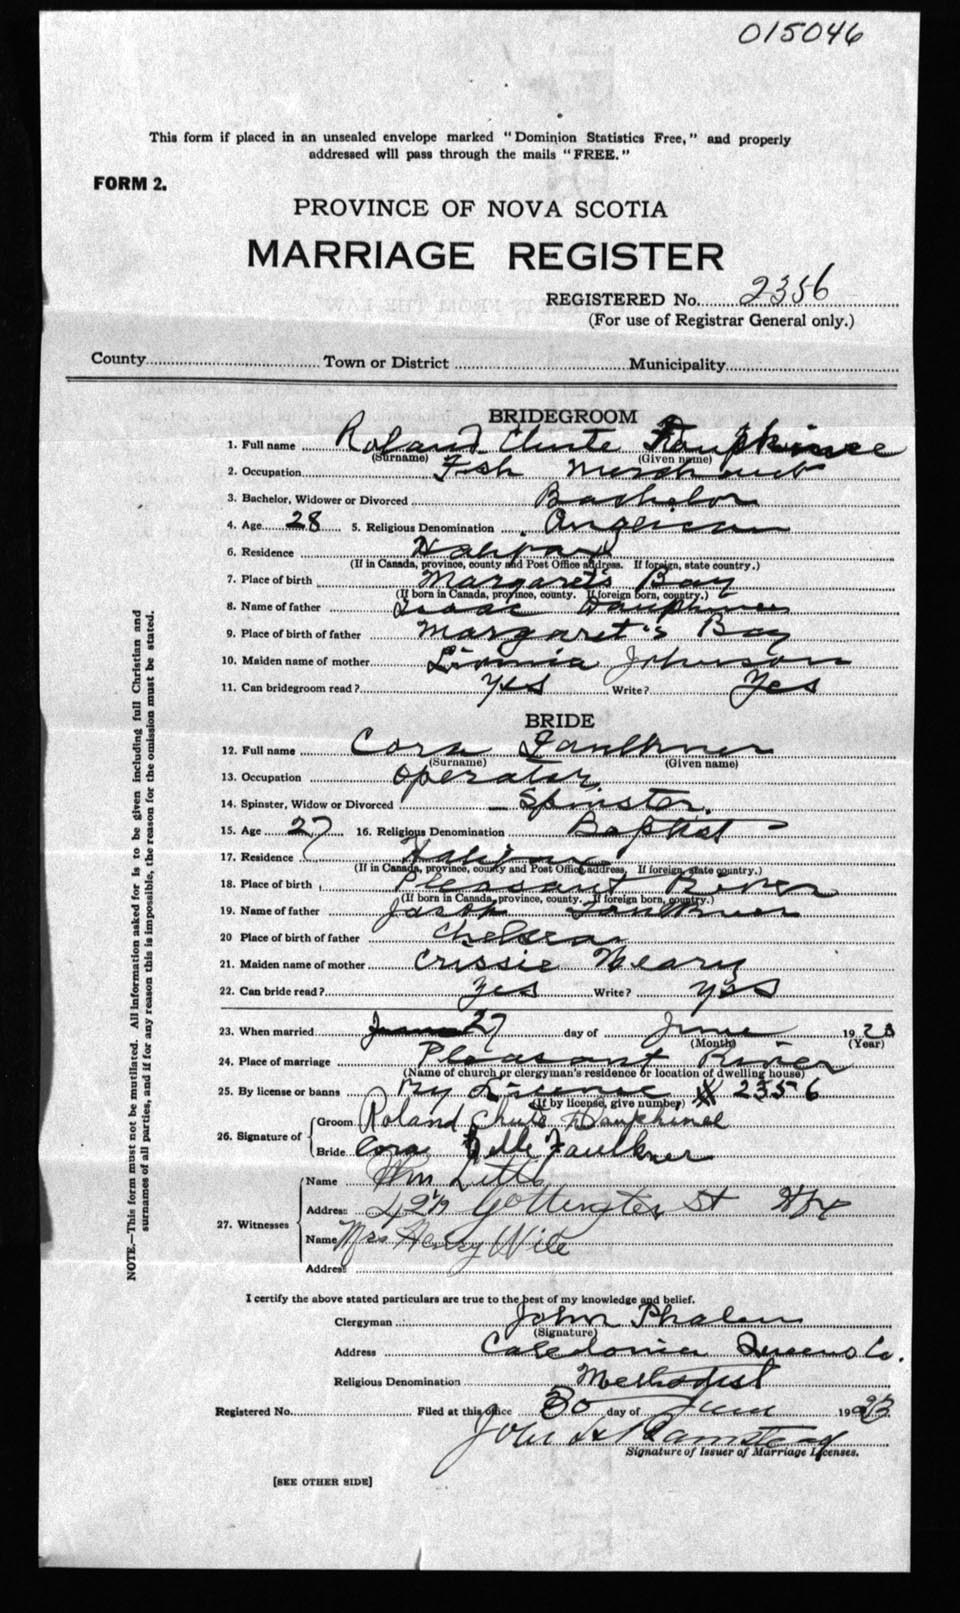 015046
This form if placed in an unsealed envelope marked "Dominion Statistics Free," and properly
addressed will pass through the mails "FREE."
FORM 2.
PROVINCE OF NOVA SCOTIA
MARRIAGE REGISTER
REGISTERED No. 2356
(For use of Registrar General only.)
County Town or District Municipality
BRIDEGROOM
1. Full name Roland Chute
(Surname) (Given name)
2. Occupation Fish Merchant
3. Bachelor, Widower or Divorced Bachelor
4. Age 28 5. Religious Denomination Anglican
6. Residence Halifax
(If in Canada, province, county and Post Office address. If foreign, state country.)
7. Place of birth Margaret's Bay
(If born in Canada, province, county. If foreign born, country.)
8. Name of father Isaac Dauphinee
9. Place of birth of father Margaret's Bay
10. Maiden name of mother Johnson
11. Can bridegroom read? Yes Write? Yes
BRIDE
12. Full name Cora Faulkner
(Surname) (Given name)
13. Occupation Operator
14. Spinster, Widow or Divorced Spinster.
15. Age 27 16. Religious Denomination Baptist
17. Residence Halifax
(If in Canada, province, county and Post Office address. If foreign, state country.)
18. Place of birth Pleasant River
(If born in Canada, province, county. If foreign born, country.)
19. Name of father Jacob Faulkner
20 Place of birth of father Chelsea
21. Maiden name of mother Crissie
22. Can bride read? Yes Write? Yes
23. When married 27 day of June 1923
(Month) (Year)
24. Place of marriage Pleasant River
(Name of church or clergyman's residence or location of dwelling house)
25. By license or banns By License # 2356
(If by license, give number)
26. Signature of Groom Roland Chute Dauphinee
Bride Cora Belle Faulkner
27. Witnesses Name Wm
Address Gottingen St Hfx
Name Mrs Henry Wile
Address
I certify the above stated particulars are true to the best of my knowledge and belief.
Clergyman John Phalen
(Signature)
Address Caledonia Queens Co.
Religious Denomination Methodist
Registered No. Filed at this office 30 day of June 1923
John
Signature of Issuer of Marriage Licenses.
[SEE OTHER SIDE]
NOTE.—This form must not be mutilated. All information asked for is to be given including full Christian and
surnames of all parties, and if for any reason this is impossible, the reason for the omission must be stated.